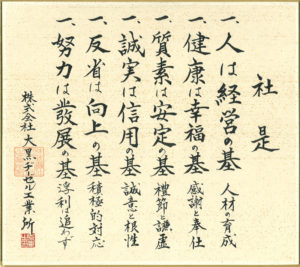 社是
一、人は経営の基 人材の育成
一、健康は幸福の基 感謝と奉仕
一、質素は安定の基 禮節と謙虚
一、誠実は信用の基 誠意と根性
一、反省は向上の基 積極的対応
一、努力は發展の基 浮利は追わず
株式会社大黒チーセル工業所